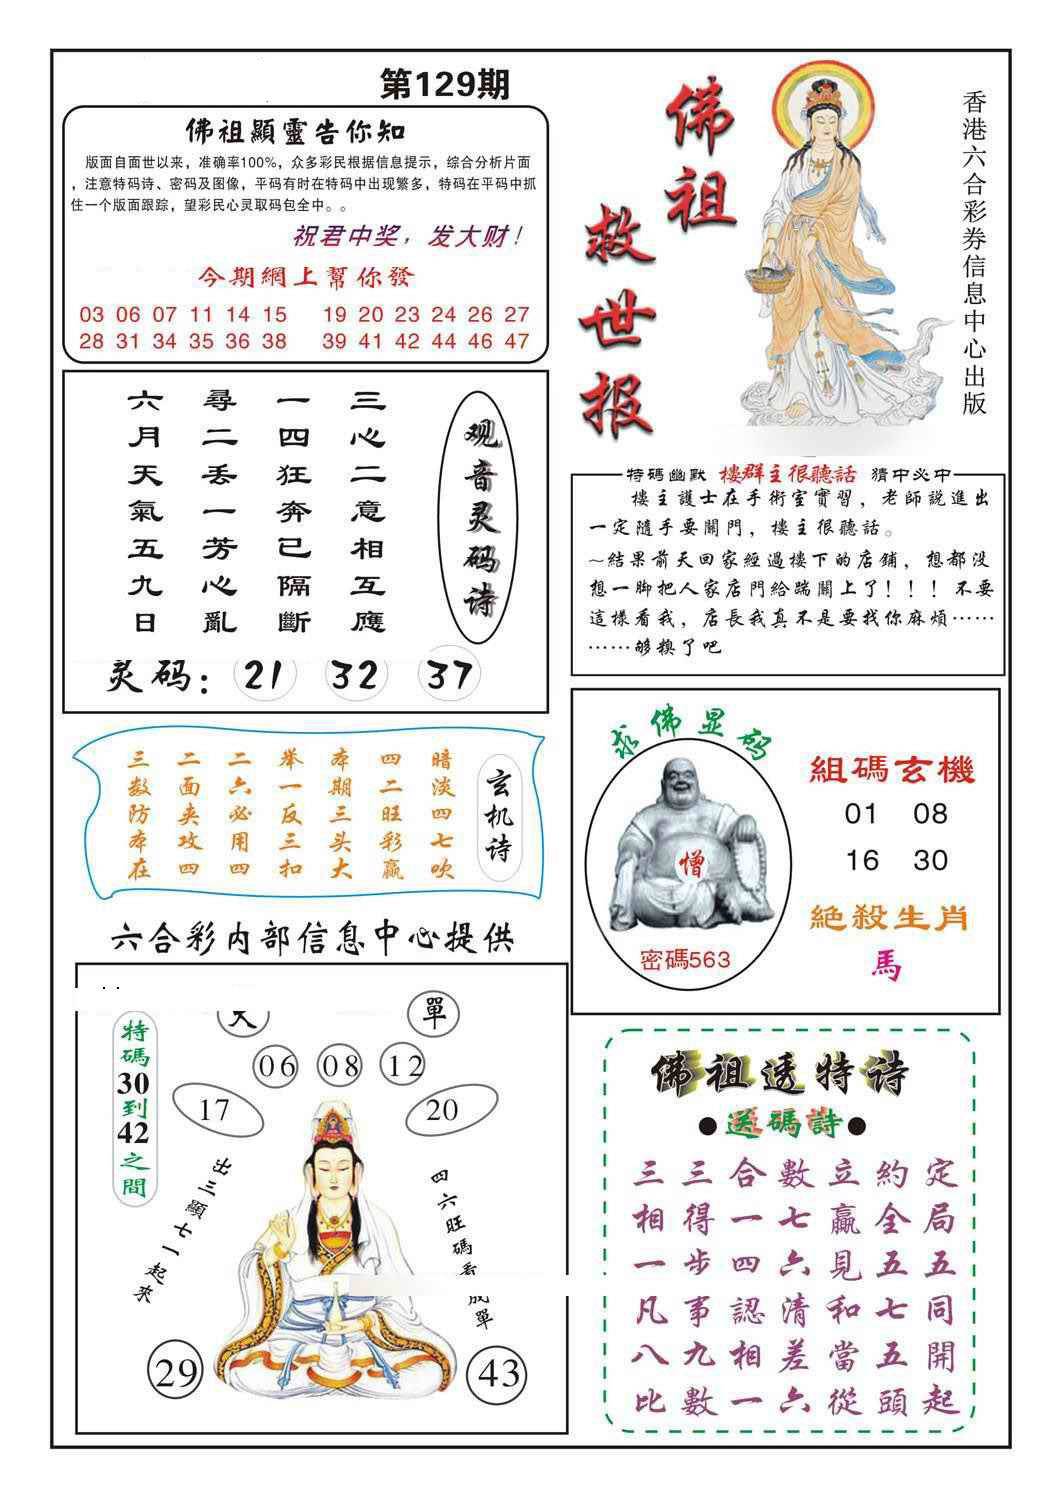 第129期
佛祖顯靈告你知
版面自面世以来，准确率100%，众多彩民根据信息提示，综合分析片面
，注意特码诗、密码及图像，平码有时在特码中出现繁多，特码在平码中抓
住一个版面跟踪，望彩民心灵取码包全中。。
祝君中奖，发大财！
今期網上幫你發
03 06 07 11 14 15 19 20 23 24 26 27
28 31 34 35 36 38 39 41 42 44 46 47
佛祖
救世报
香港六合彩券信息中心出版
观音灵码诗
三心二意相互應
一四狂奔已隔斷
尋二丢一芳心亂
六月天氣五九日
灵码：21 32 37
特碼幽默 樓群主很聽話 猜中必中
樓主護士在手術室實習，老師説進出
一定隨手要關門，樓主很聽話。
~结果前天回家經過樓下的店鋪，想都没
想一脚把人家店門給踹關上了！！！不要
這樣看我，店長我真不是要找你麻煩……
……够糗了吧
玄机诗
暗淡四七吹
四二旺彩赢
本期三头大
举一反三扣
二六必用四
二面夹攻四
三数防本在
求佛显码
僧
密碼563
組碼玄機
01 08
16 30
絶殺生肖
馬
六合彩内部信息中心提供
單
06 08 12
17 20
特碼30到42之間
出三顯七一起來
四六旺碼看成單
29 43
佛祖透特诗
●送碼詩●
三三合數立約定
相得一七贏全局
一步四六見五五
凡事認清和七同
八九相差當五開
比數一六從頭起